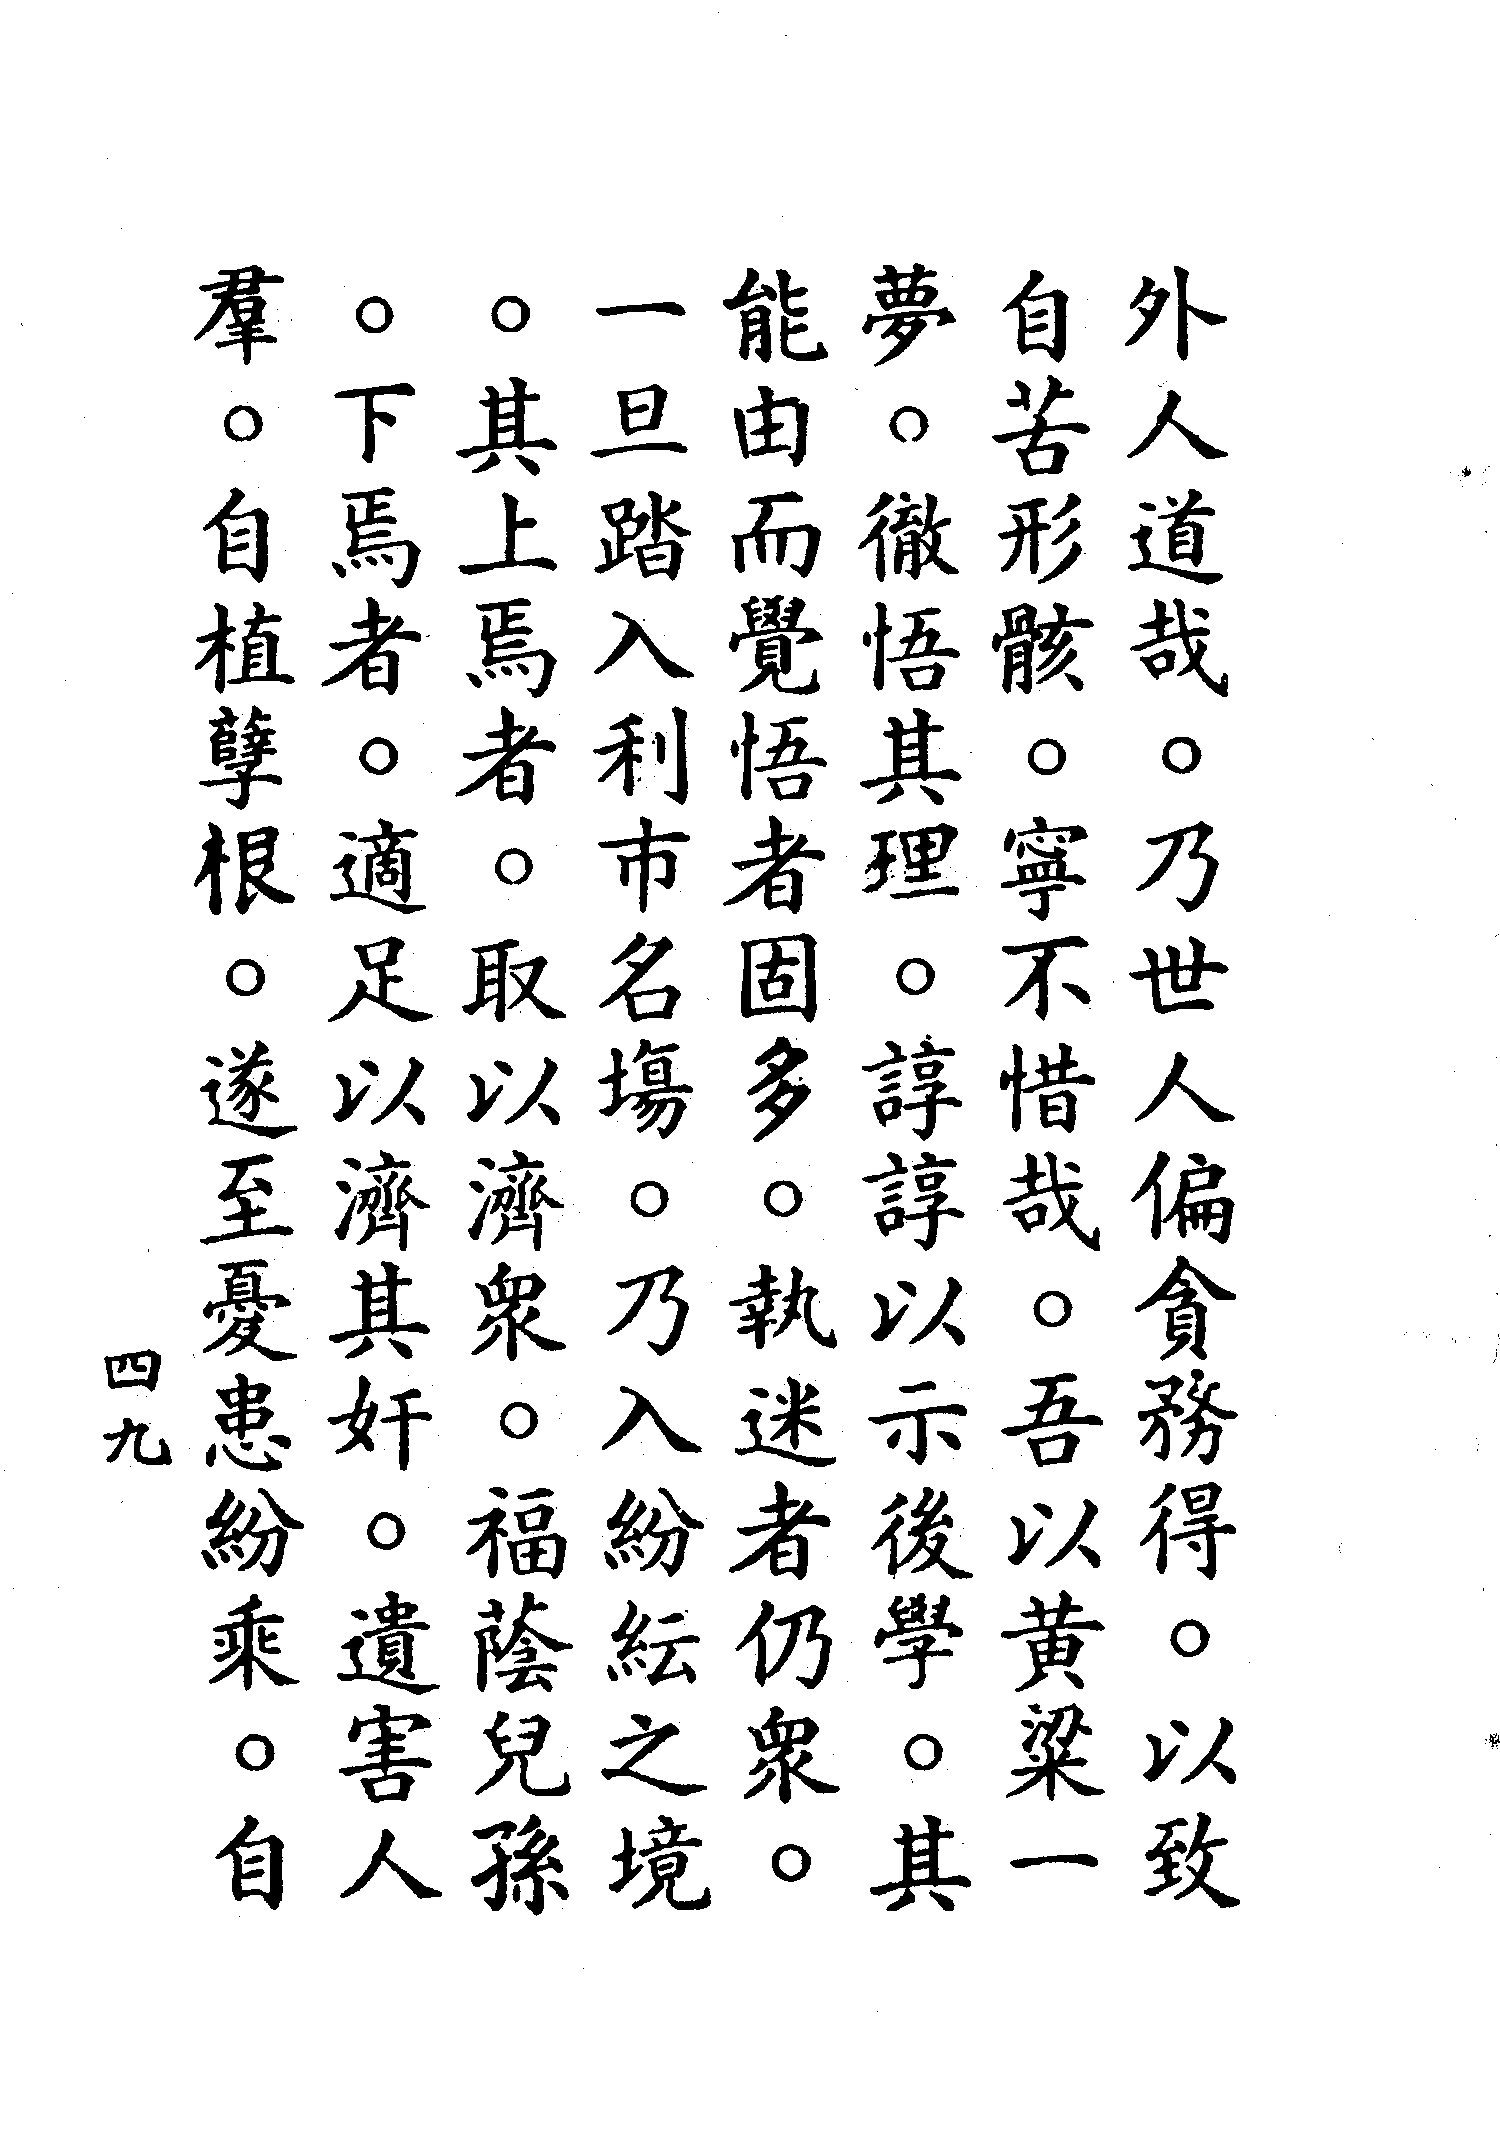 外人道哉。乃世人偏貪務得。以致
自苦形骸。寧不惜哉。吾以黄粱一
夢。徹悟其理。諄諄以示後學。其
能由而覺悟者固多。執迷者仍衆。
一旦踏入利市名塲。乃入紛紜之境
。其上焉者。取以濟衆。福蔭兒孫
。下焉者。適足以濟其奸。遺害人
羣。自植孽根。遂至憂患紛乘。自
四九